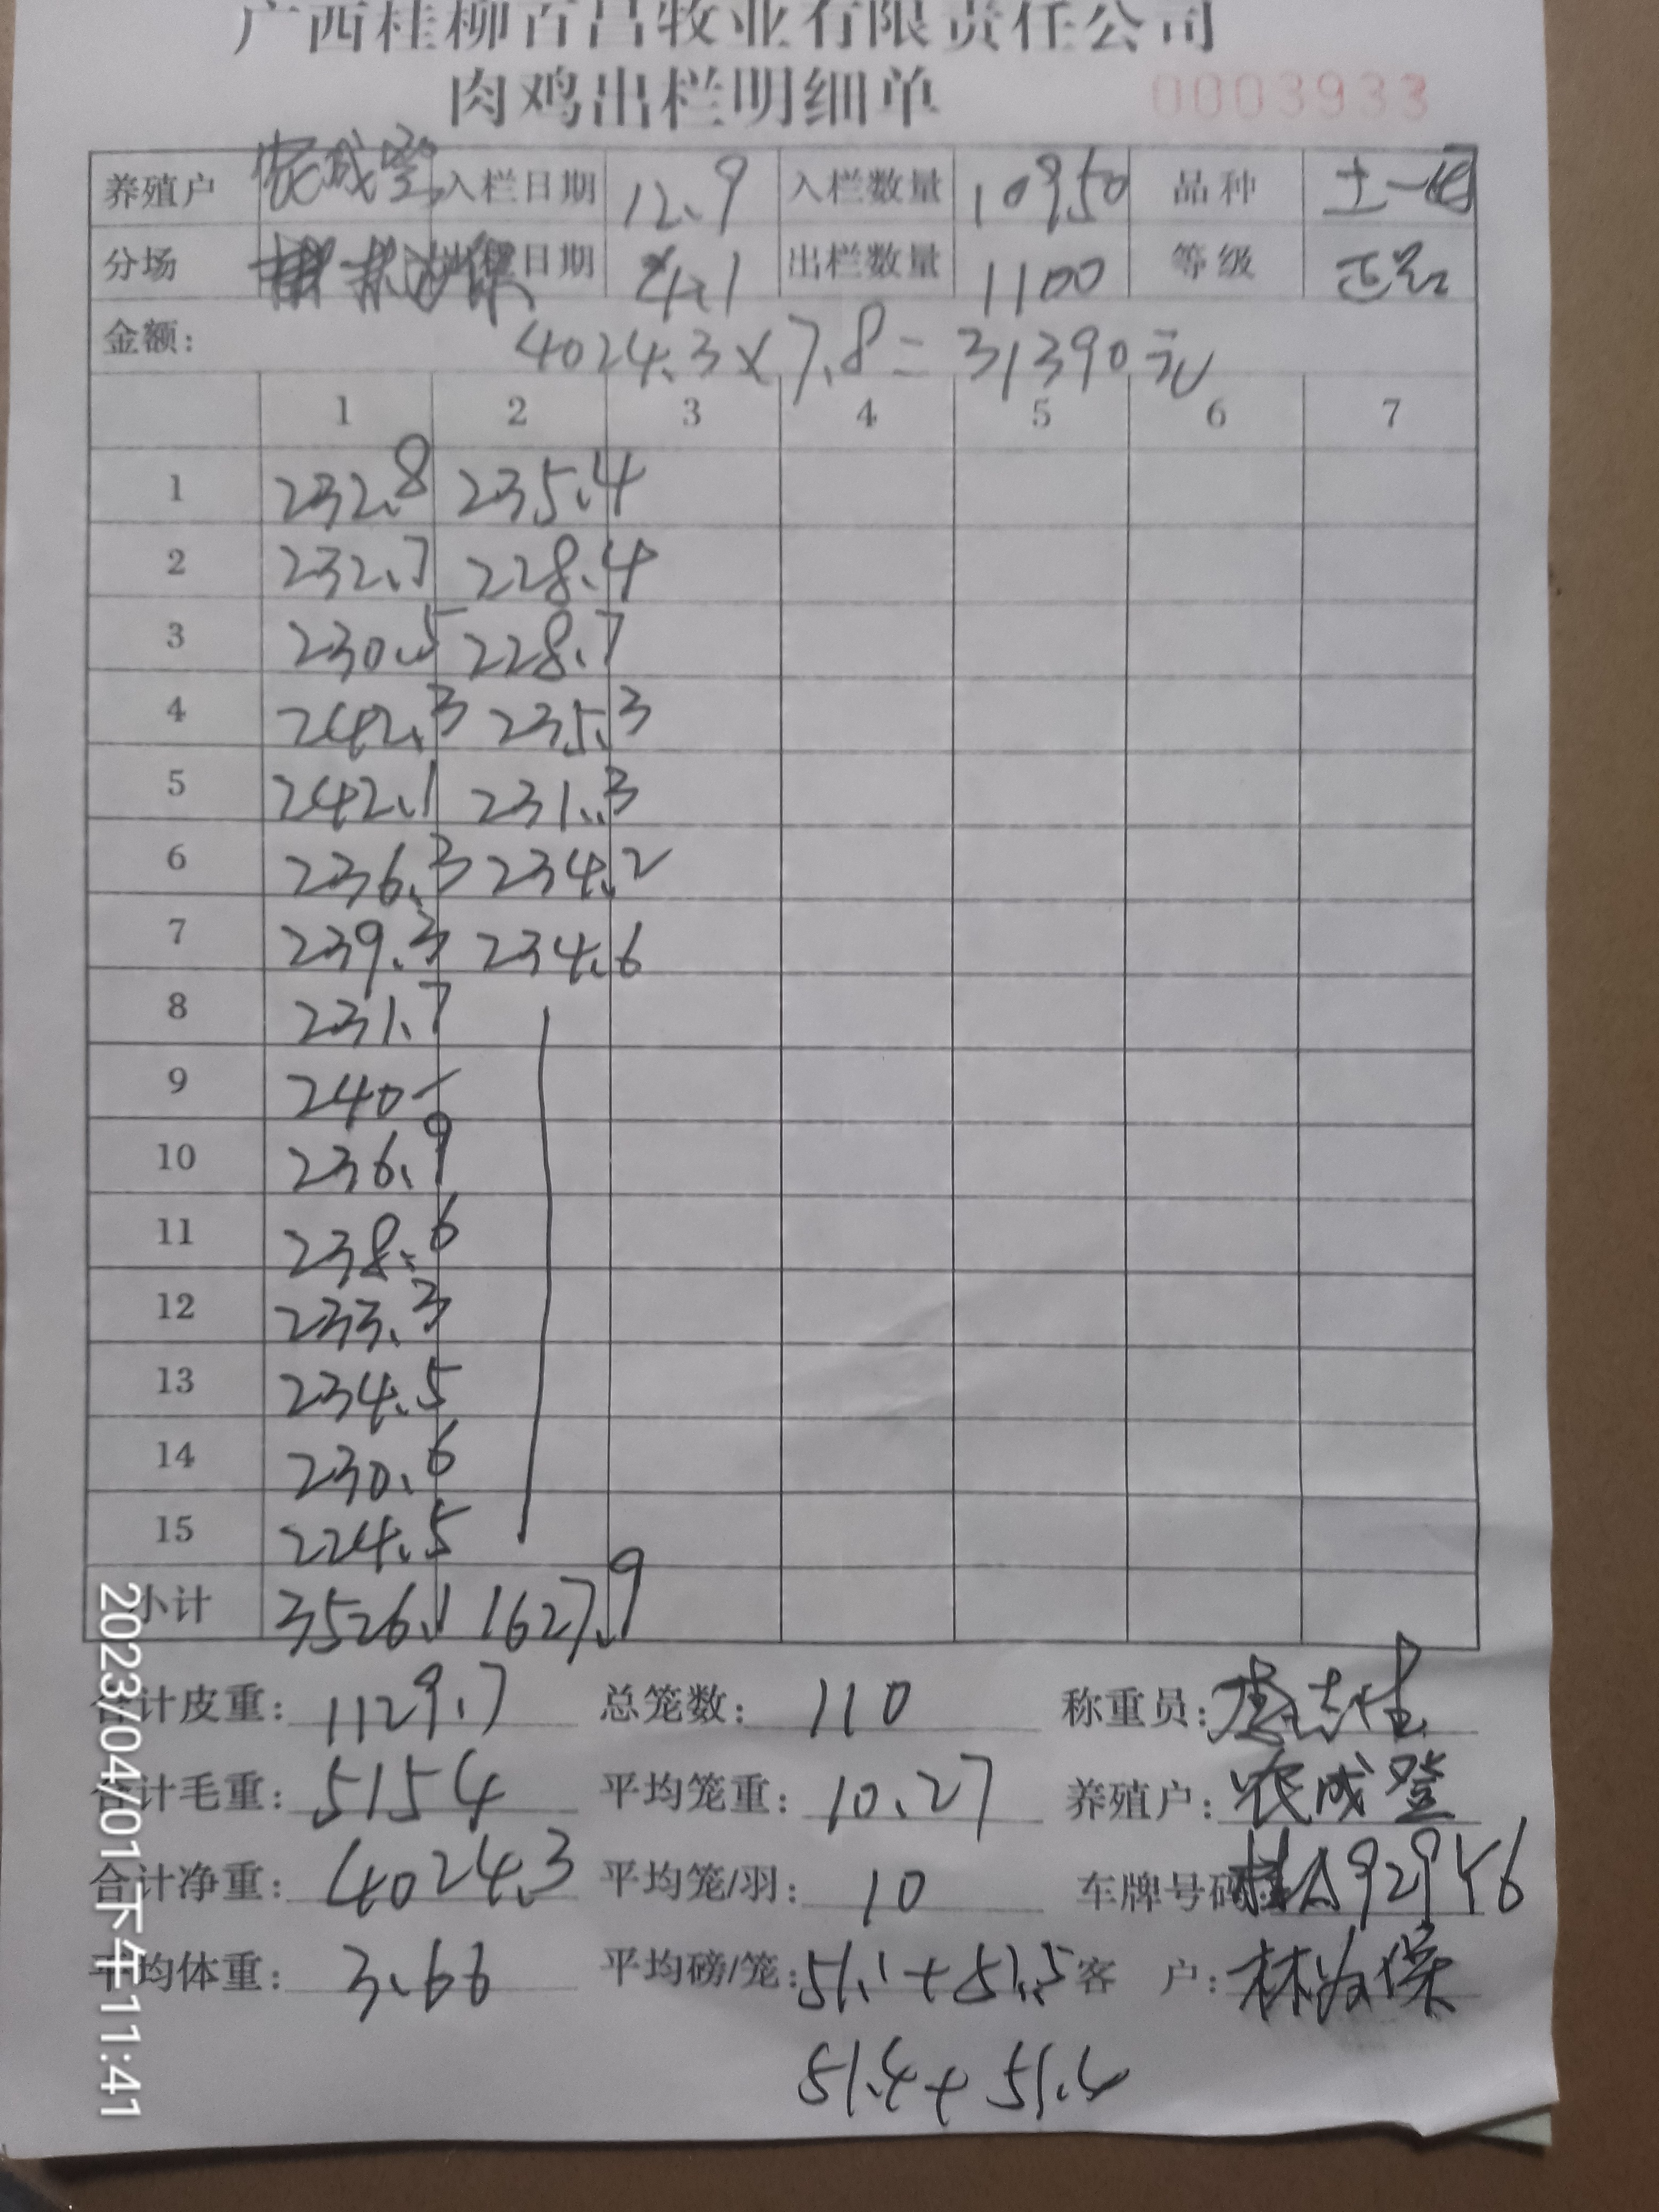 广西桂柳百昌牧业有限责任公司
肉鸡出栏明细单 0003933
养殖户 农成登 入栏日期 12.9 入栏数量 10950 品种 土一
分场 日期 4.1 出栏数量 1100 等级 正品
金额: 4024.3×7.8=31390元
1 2 3 4 5 6 7
1 232.8 235.4
2 232.7 228.4
3 230.5 228.7
4 242.3 235.3
5 242.1 231.3
6 236.3 234.2
7 239.3 234.6
8 231.7
9 240-
10 236.9
11 238.6
12 233.3
13 234.5
14 230.6
15 224.5
小计 3526.1 1627.9
合计皮重: 1129.7 总笼数: 110 称重员:
合计毛重: 5154 平均笼重: 10.27 养殖户: 农成登
合计净重: 4024.3 平均笼/羽: 10 车牌号码: 桂A929Y6
平均体重: 3.66 平均磅/笼: 51.1+51.5 客 户: 林为保
51.4+51.4
2023/04/01 下午11:41